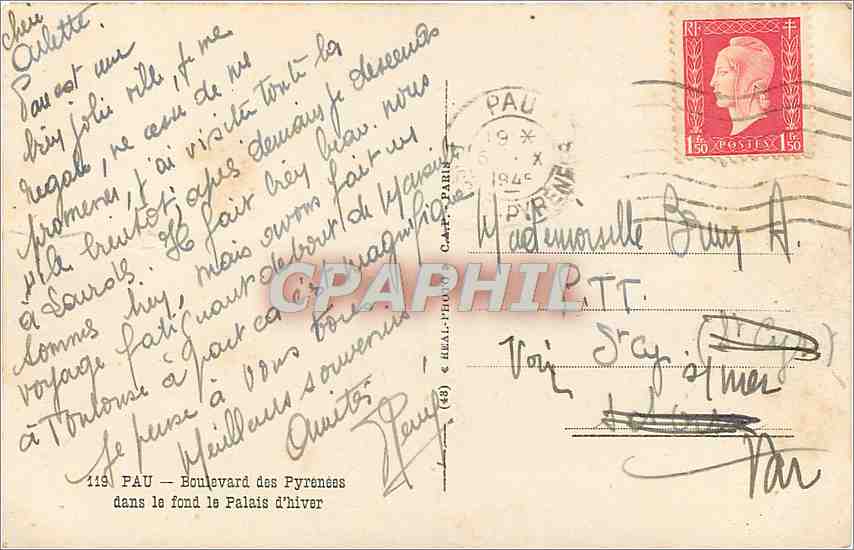 chérie
Arlette.
Pau est une
bien jolie ville, je me
régale, ne cesse de me
promener, j'ai visité toute la
ville bientôt, après demain je descends
à Lourdes. Il fait très beau. nous
sommes hier, mais avons fait un
voyage fatiguant debout de Marseille
à Toulouse à part ça c'est magnifique
Je pense à vous tous.
Meilleurs souvenirs
Amitiés
119 PAU — Boulevard des Pyrénées
dans le fond le Palais d'hiver
(43) © REAL-PHOTO C.A.P. PARIS
RF
1 Fr. 50 POSTES 1 Fr. 50
PAU
19 *
6 X
1945
PYRENEES
CPAPHIL
Mademoiselle Bruny A.
PTT.
St Cyr (St Cyr)
s/mer
Var